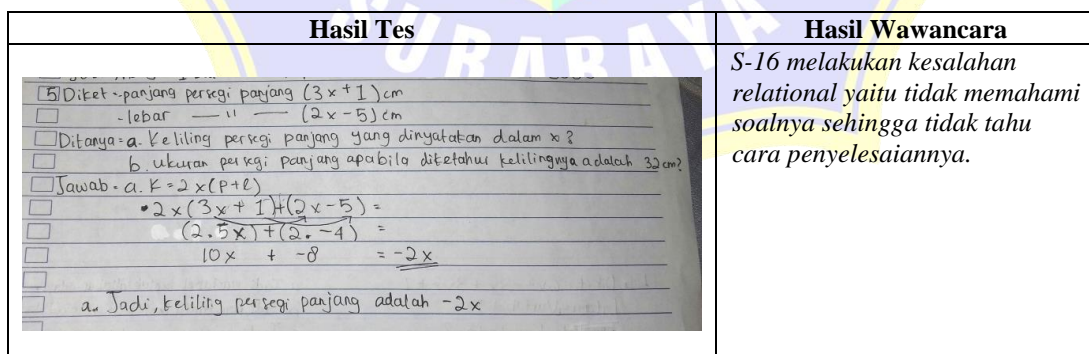 Hasil Tes
Hasil Wawancara
5 Diket : panjang persegi panjang (3x+1) cm
- lebar — " — (2x-5) cm
Ditanya : a. Keliling persegi panjang yang dinyatakan dalam x?
b. ukuran persegi panjang apabila diketahui kelilingnya adalah 32 cm?
Jawab : a. K = 2 x (P+l)
• 2 x (3x + 1) + (2x - 5) =
(2.5x) + (2. -4) =
10x + -8 = -2x
a. Jadi, keliling persegi panjang adalah -2x
S-16 melakukan kesalahan
relational yaitu tidak memahami
soalnya sehingga tidak tahu
cara penyelesaiannya.